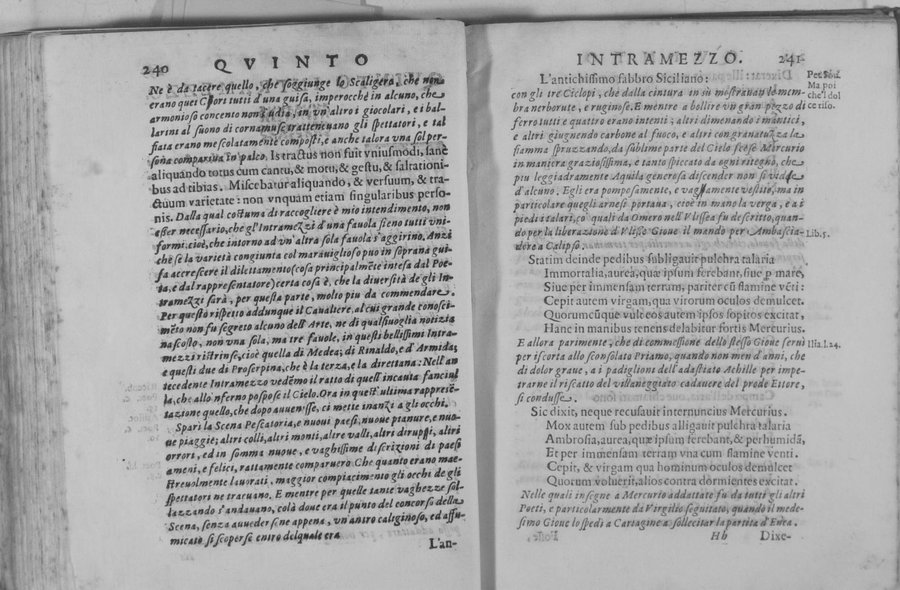 240 QVINTO
Ne è da tacere quello, che soggiunge lo Scaligero, che non
erano quei Cori tutti d'una guisa, imperocchè in alcuno, che
armonioso concento non s'udia, in vn'altro i giocolari, e i bal-
larini al suono di cornamuse trattenuano gli spettatori, e tal
fiata erano mescolatamente composti, e anche talora vna sol per-
sona compariua in palco. Is tractus non fuit vniusmodi, sanè
aliquando totus cum cantu, & motu, & gestu, & saltationi-
bus ad tibias. Miscebatur aliquando, & versuum, & tra-
ctuum varietate: non vnquam etiam singularibus perso-
nis. Dalla qual costuma di raccogliere è mio intendimento, non
esser necessario, che gl'Intramezzi d'una fauola sieno tutti vni-
formi, cioè, che intorno ad vn'altra sola fauola s'aggirino. Anzi
chè se la varietà congiunta col marauiglioso puo in soprana gui-
sa accrescere il dilettamento (cosa principalmēte intesa dal Poe-
ta, e dal rappresentatore) certa cosa è, che la diuersità de gli In-
tramezzi sarà, per questa parte, molto piu da commendare.
Per questo rispetto addunque il Caualiere, al cui grande conosci-
mēto non fu segreto alcuno dell'Arte, ne di qualsiuoglia notizia
nascosto, non vna sola, ma tre fauole, in questi bellissimi Intra-
mezzi ristrinse, cioè quella di Medea; di Rinaldo, e d'Armida;
e questi due di Proserpina, che è la terza, e la diretana: Nell'an
tecedente Intramezzo vedēmo il ratto di quell'incauta fanciul
la, che allo'nferno pospose il Cielo. Ora in quest'ultima rappresē-
tazione quello, che dopo auuenisse, ci mette inanzi a gli occhi.
Spari la Scena Pescatoria, e nuoui paesi, nuoue pianure, e nuo-
ue piaggie; altri colli, altri monti, altre valli, altri dirupi, altri
orrori, ed in somma nuoue, e vaghissime discrizioni di paesi
ameni, e felici, rattamente comparuero. Che quanto erano mae-
streuolmente lauorati, maggior compiacimento gli occhi de gli
spettatori ne traeuano. E mentre per quelle tante vaghezze sol-
lazzando s'andauano, colà doue era il punto del concorso della
Scena, senza auuedersene appena, vn'antro caliginoso, ed affu-
micato si scoperse entro del quale era
L'an-
INTRAMEZZO. 241
L'antichissimo fabbro Siciliano:
con gli tre Ciclopi, che dalla cintura in sù mostrauano le mem-
bra nerborute, e rugginose. E mentre a bollire vn gran pezzo di
ferro tutti e quattro erano intenti; altri dimenando i mantici,
e altri giugnendo carbone al fuoco, e altri con granatuzza la
fiamma spruzzando, da sublime parte del Cielo scese Mercurio
in maniera graziosissima, e tanto spiccato da ogni ritegno, che
piu leggiadramente Aquila generosa discender non si vide
d'alcuno. Egli era pomposamente, e vagamente vestito, ma in
particolare quegli arnesi portaua, cioè in mano la verga, e a i
piedi i talari, co quali da Omero nell'Vlissea fu descritto, quan-
do per la liberazione d'Vlisse Gioue il mandò per Ambascia-
dore a Calipso.
Lib. 5.
Statim deinde pedibus subligauit pulchra talaria
Immortalia, aurea, quæ ipsum ferebant, siue p mare,
Siue per immensam terram, pariter cū flamine vēti:
Cepit autem virgam, qua virorum oculos demulcet.
Quorumcūque vult eos autem ipsos sopitos excitat,
Hanc in manibus tenens delabitur fortis Mercurius.
E allora parimente, che di commessione dello stesso Gioue serui
Ilia. l. 24.
per iscorta allo sconsolato Priamo, quando non men d'anni, che
di dolor graue, a i padiglioni dell'adastiato Achille per impe-
trarne il riscatto del villaneggiato cadauere del prode Ettore,
si condusse.
Sic dixit, neque recusauit internuncius Mercurius.
Mox autem sub pedibus alligauit pulchra talaria
Ambrosia, aurea, quæ ipsum ferebant, & per humidā,
Et per immensam terram vna cum flamine venti.
Cepit, & virgam qua hominum oculos demulcet
Quorum voluerit, alios contra dormientes excitat.
Nelle quali insegne a Mercurio addattate fu da tutti gli altri
Poeti, e particolarmente da Virgilio seguitato, quando il mede-
simo Gioue lo spedì a Cartagine a sollecitar la partita d'Enea.
Hh Dixe-
Ma poi